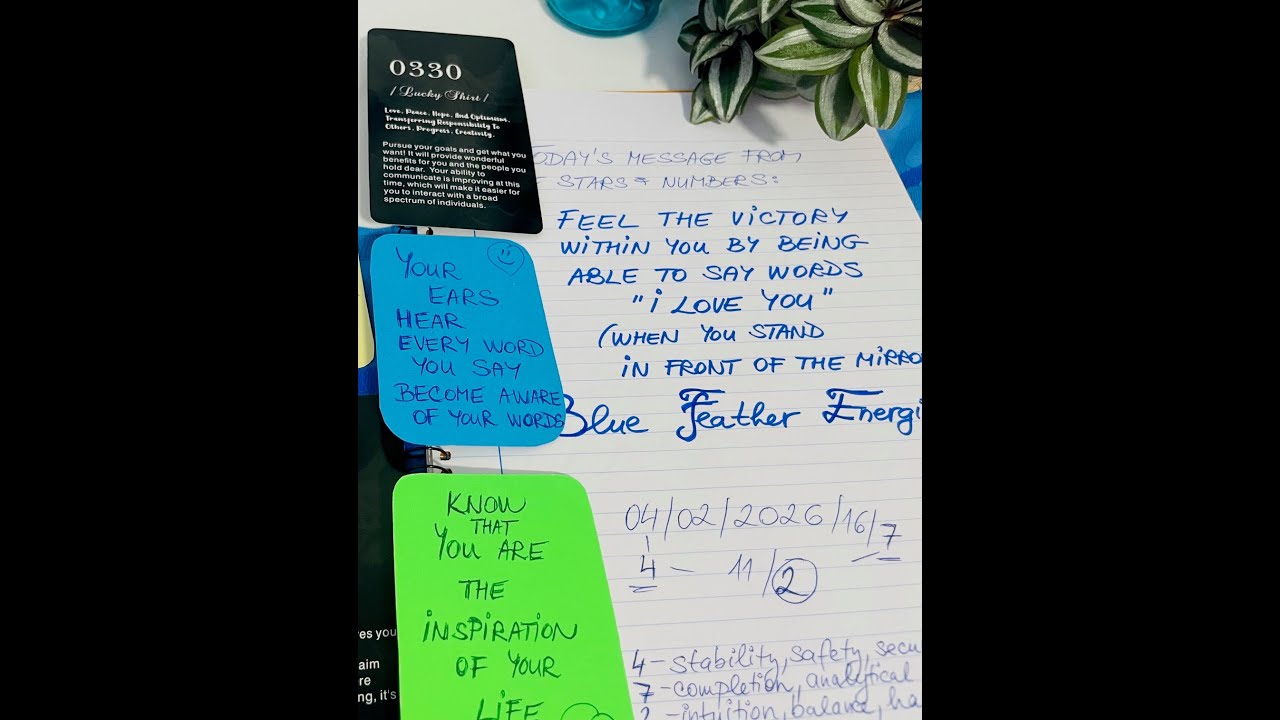 0330
/ Lucky Shirt /
Love, Peace, Hope, And Optimism,
Transferring Responsibility To
Others, Progress, Creativity.
Pursue your goals and get what you
want! It will provide wonderful
benefits for you and the people you
hold dear. Your ability to
communicate is improving at this
time, which will make it easier for
you to interact with a broad
spectrum of individuals.
TODAY'S MESSAGE FROM
STARS & NUMBERS:
FEEL THE VICTORY
WITHIN YOU BY BEING
ABLE TO SAY WORDS
"I LOVE YOU"
(WHEN YOU STAND
IN FRONT OF THE MIRRO
Blue Feather Energi
YOUR
EARS
HEAR
EVERY WORD
YOU SAY
BECOME AWARE
OF YOUR WORDS
KNOW
THAT
YOU ARE
THE
INSPIRATION
OF YOUR
LIFE
04/02/2026/16/7
4 - 11/2
4-stability, safety, secu
7-completion, analytical
2-intuition, balance, ha
res you
aim
re
ng, it's